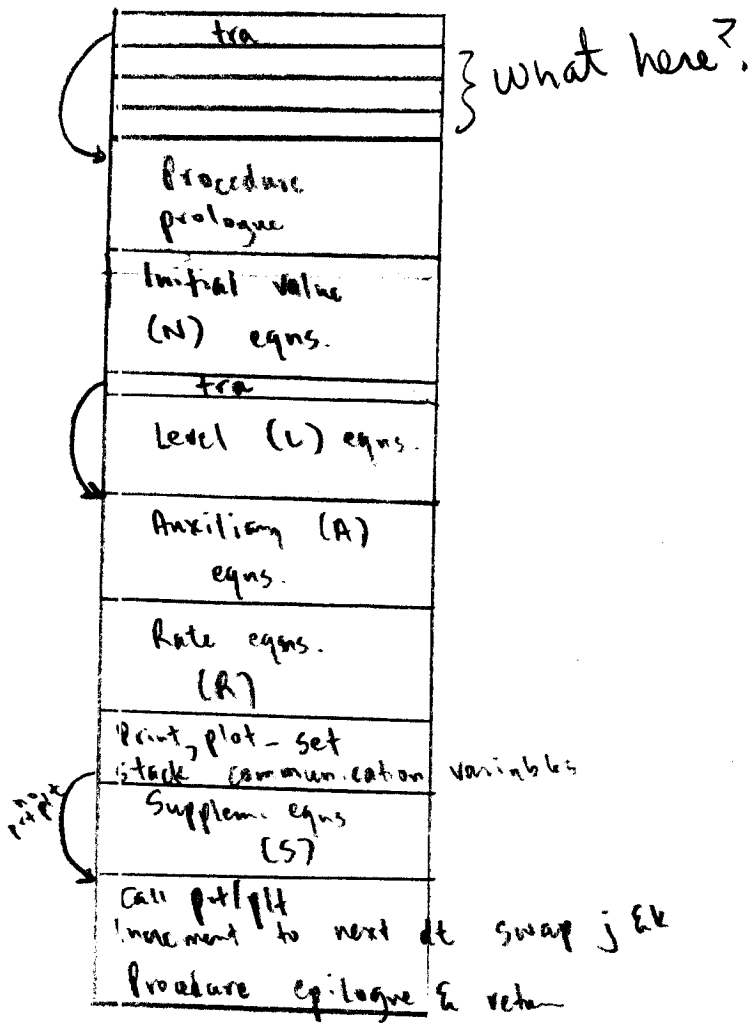 tra
What here?
Procedure
prologue
Initial value
(N) eqns.
tra
Level (L) eqns.
Auxiliary (A)
eqns.
Rate eqns.
(R)
Print, plot - set
stack communication variables
no
prt plt
Supplem. eqns
(S)
Call prt/plt
Increment to next dt swap j & k
Procedure epilogue & return